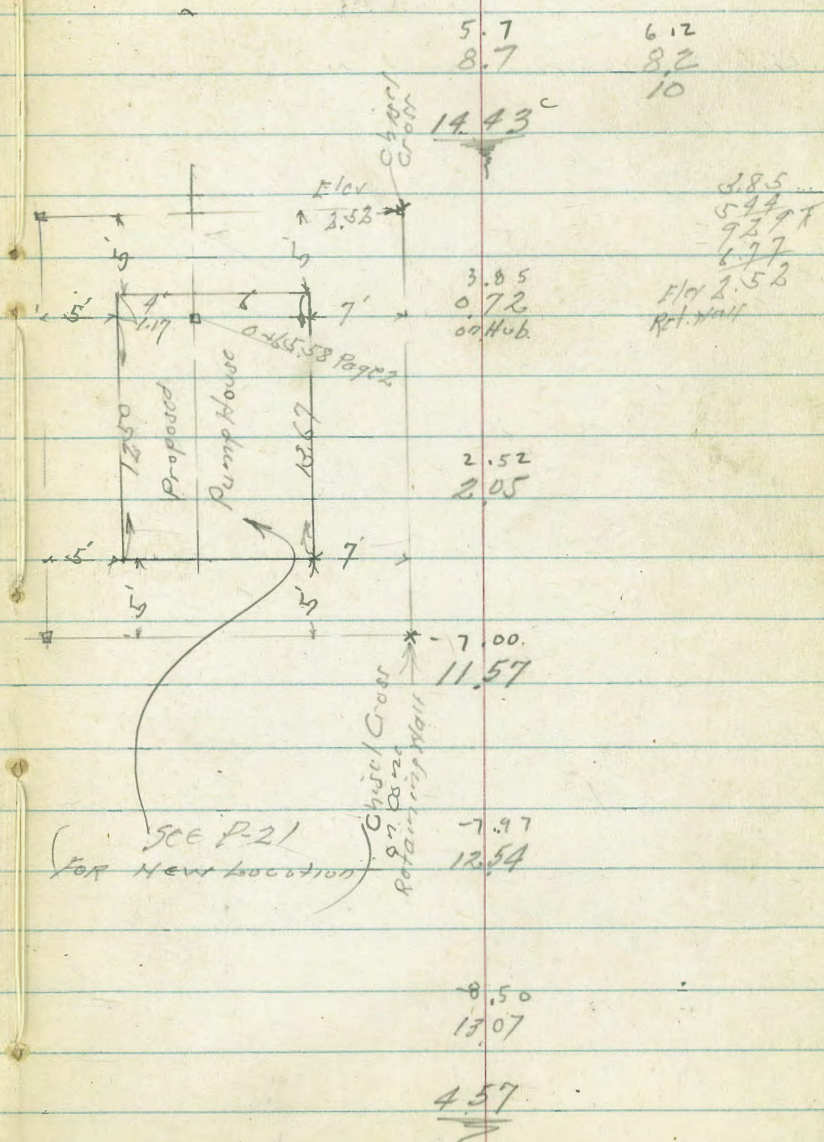 5.7 6.12
8.7 8.2
10
14.43 c
Chisel
Cross
Elev
2.52
3.85
5.44
9.29
6.77
Elev 2.52
Ret. Wall
5' 5'
3.85
0.72
on Hub.
5' 4' 6 7'
1.17
0+65.58 Page 2
12.50
Proposed
Pump House
2.52
2.05
5' 7'
5' 5'
-7.00
11.57
Chisel Cross
on Conc
Retaining Wall
SEE P-21
(FOR NEW LOCATION)
-7.97
12.54
-8.50
13.07
4.57